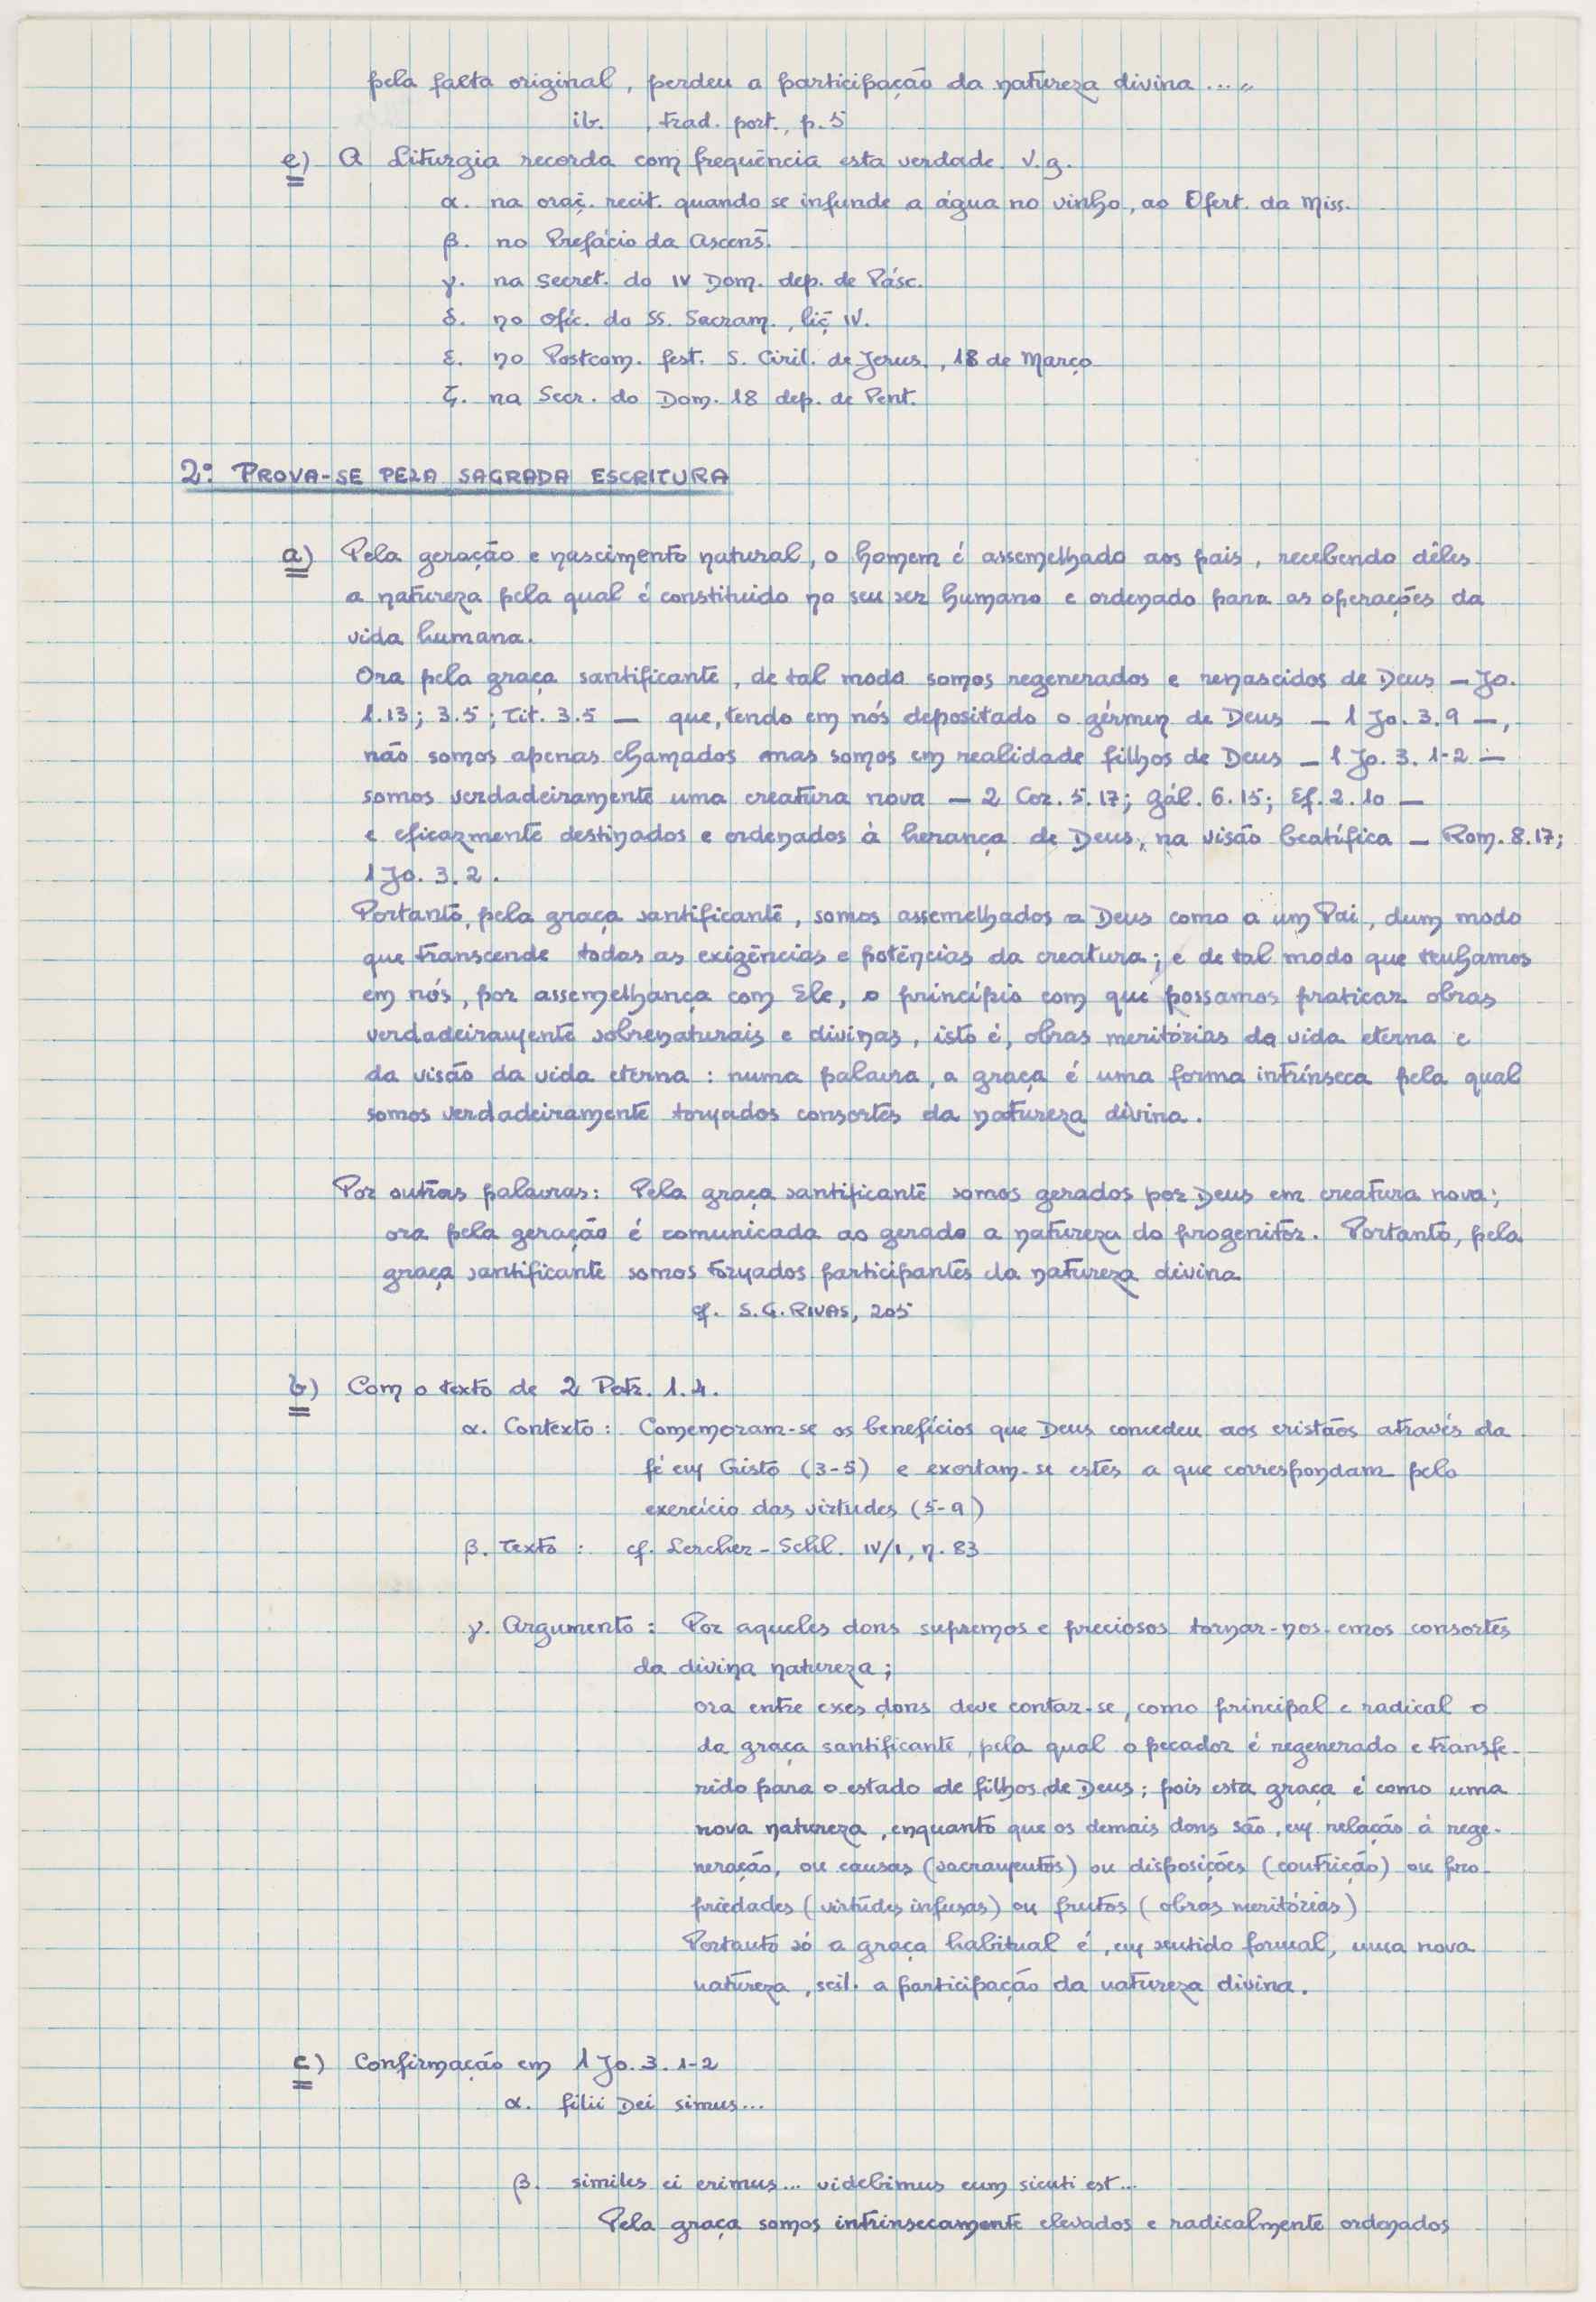 pela falta original, perdeu a participação da natureza divina ... „
ib. , trad. port., p. 5
e) A Liturgia recorda com frequência esta verdade. v.g.
α. na oraç. recit. quando se infunde a água no vinho, ao Ofert. da Miss.
β. no Prefácio da Ascens.
γ. na Secret. do IV Dom. dep. de Pásc.
δ. no Ofíc. do SS. Sacram., liç IV.
ε. no Postcom. fest. S. Ciril. de Jerus., 18 de Março
ζ. na Secr. do Dom. 18 dep. de Pent.
2º. PROVA-SE PELA SAGRADA ESCRITURA
a) Pela geração e nascimento natural, o homem é assemelhado aos pais, recebendo dêles
a natureza pela qual é constituido no seu ser humano e ordenado para as operações da
vida humana.
Ora pela graça santificante, de tal modo somos regenerados e renascidos de Deus — Jo.
1.13; 3.5; Tit. 3.5 — que, tendo em nós depositado o gérmen de Deus — 1 Jo. 3.9 —,
não somos apenas chamados mas somos em realidade filhos de Deus — 1 Jo. 3. 1-2 —
somos verdadeiramente uma creatura nova — 2 Cor. 5.17; Gál. 6.15; Ef. 2.10 —
e eficazmente destinados e ordenados à herança de Deus, na visão beatífica — Rom. 8.17;
1 Jo. 3.2.
Portanto, pela graça santificante, somos assemelhados a Deus como a um Pai, dum modo
que transcende todas as exigências e potências da creatura; e de tal modo que tenhamos
em nós, por assemelhança com Ele, o princípio com que possamos praticar obras
verdadeiramente sobrenaturais e divinas, isto é, obras meritórias da vida eterna e
da visão da vida eterna : numa palavra, a graça é uma forma intrínseca pela qual
somos verdadeiramente tornados consortes da natureza divina.
Por outras palavras: Pela graça santificante somos gerados por Deus em creatura nova;
ora pela geração é comunicada ao gerado a natureza do progenitor. Portanto, pela
graça santificante somos tornados participantes da natureza divina
cf. S.G. RIVAS, 205
b) Com o texto de 2 Petr. 1.4.
α. Contexto : Comemoram-se os benefícios que Deus concedeu aos cristãos através da
fé em Cristo (3-5) e exortam-se estes a que correspondam pelo
exercício das virtudes (5-9)
β. Texto : cf. Lercher - Schl. IV/1, n. 83
γ. Argumento : Por aqueles dons supremos e preciosos tornar-nos-emos consortes
da divina natureza;
ora entre esses dons deve contar-se, como principal e radical o
da graça santificante, pela qual o pecador é regenerado e transfe-
rido para o estado de filhos de Deus; pois esta graça é como uma
nova natureza, enquanto que os demais dons são, em relação à rege-
neração, ou causas (sacramentos) ou disposições (contrição) ou pro-
priedades (virtudes infusas) ou frutos (obras meritórias)
Portanto só a graça habitual é, em sentido formal, uma nova
natureza, scil. a participação da natureza divina.
c) Confirmação em 1 Jo. 3. 1-2
α. filii Dei simus...
β. similes ei erimus... videbimus eum sicuti est...
Pela graça somos intrinsecamente elevados e radicalmente ordenados